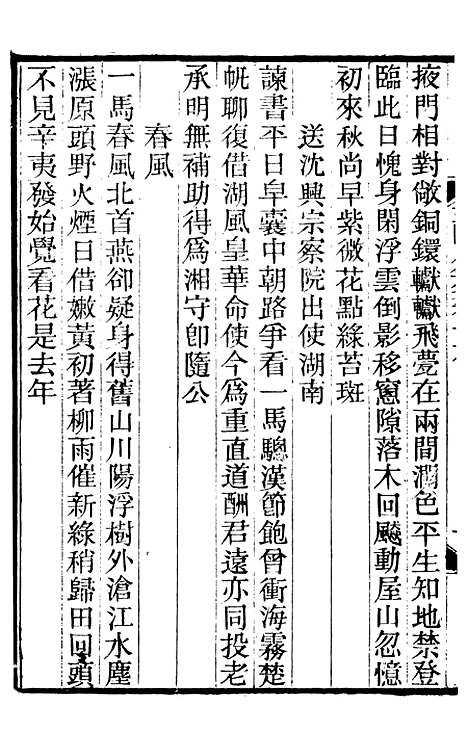 掖門相對敞銅鐶轣轣飛甍在兩間潤色平生知地禁登
臨此日愧身閑浮雲倒影移窻隙落木回飈動屋山忽憶
初來秋尚早紫微花點綠苔斑
送沈興宗察院出使湖南
諫書平日皁囊中朝路爭看一馬驄漢節飽曾衝海霧楚
㡌聊復借湖風皇華命使今爲重直道酬君遠亦同投老
承明無補助得爲湘守卽隨公
春風
一馬春風北首燕卻疑身得舊山川陽浮樹外滄江水塵
漲原頭野火煙日借嫩黃初著柳雨催新綠稍歸田回頭
不見辛夷發始覺看花是去年